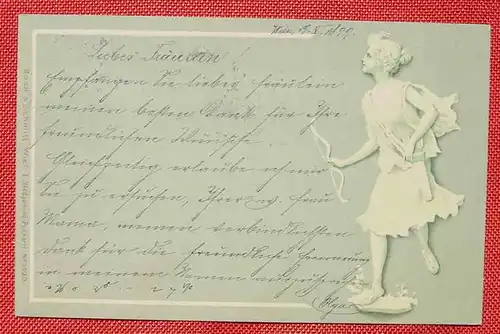 Wien, 1899.
Liebes Fräulein!
Empfangen Sie liebes Fräulein
meinen besten Dank für Ihre
freundlichen Wünsche.
Gleichzeitig erlaube ich mir
Sie zu ersuchen, Ihrer Frau
Mama, meinen verbindlichsten
Dank für die freundliche Erinnerung
in meinem Namen
Olga